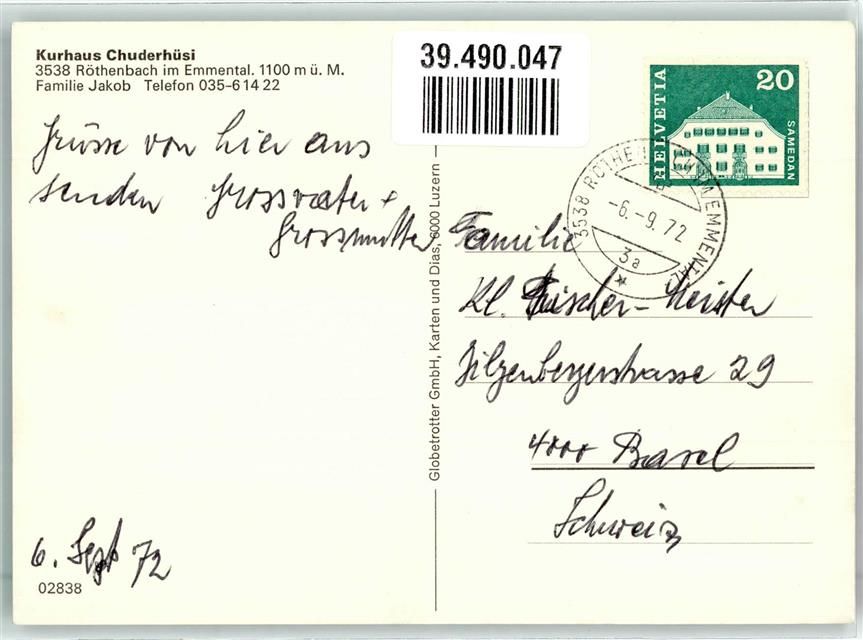 Kurhaus Chuderhüsi
3538 Röthenbach im Emmental. 1100 m ü. M.
Familie Jakob Telefon 035-6 14 22
39.490.047
HELVETIA
20
SAMEDAN
3538 RÖTHENBACH IM EMMENTAL
-6.-9.72
3a
Grüsse von hier aus
senden Grossvater +
Grossmutter
Globetrotter GmbH, Karten und Dias, 6000 Luzern
Familie
Kl. Fischer-Meister
Hilzenbergerstrasse 29
4000 Basel
Schweiz
6. Sept 72
02838